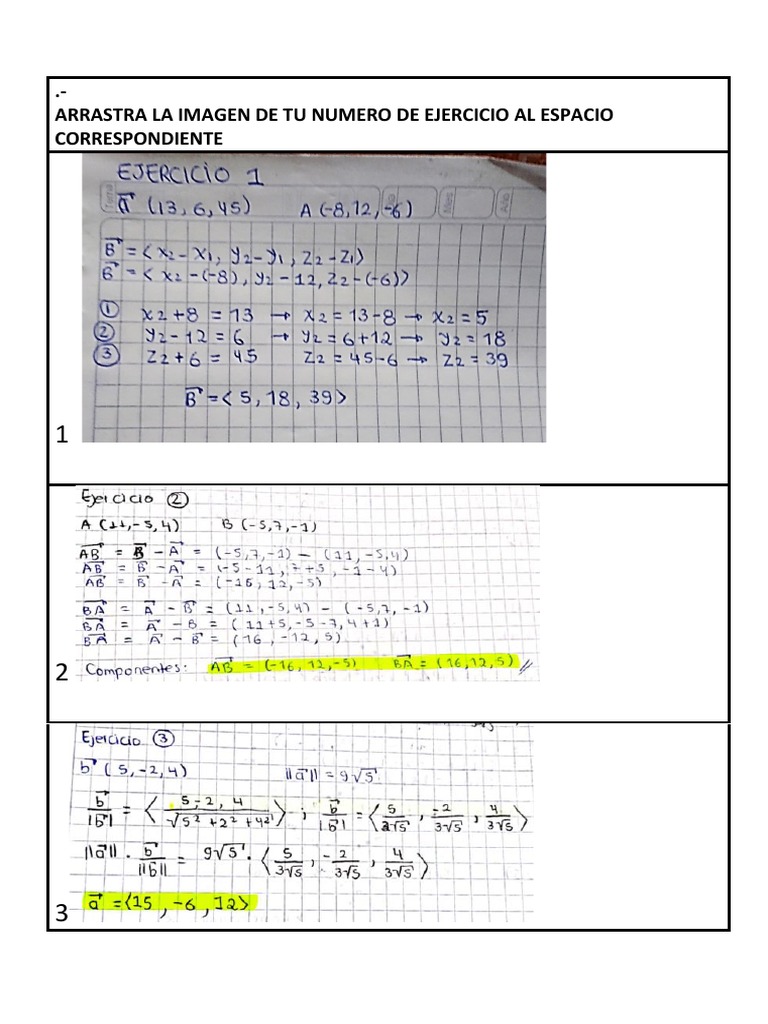 .-
ARRASTRA LA IMAGEN DE TU NUMERO DE EJERCICIO AL ESPACIO
CORRESPONDIENTE
EJERCICIO 1
Tema
Día
Mes
Año
a⃗ (13, 6, 45) A (-8, 12, -6)
B⃗ = < x2 - x1, y2 - y1, z2 - z1>
B⃗ = < x2 - (-8), y2 - 12, z2 - (-6)>
① x2 + 8 = 13 → x2 = 13 - 8 → x2 = 5
② y2 - 12 = 6 → y2 = 6 + 12 → y2 = 18
③ z2 + 6 = 45 z2 = 45 - 6 → z2 = 39
B⃗ = < 5, 18, 39>
1
Ejercicio ②
A (11, -5, 4) B (-5, 7, -1)
AB⃗ = B⃗ - A⃗ = (-5, 7, -1) - (11, -5, 4)
AB⃗ = B⃗ - A⃗ = (-5 - 11, 7 + 5, -1 - 4)
AB⃗ = B⃗ - A⃗ = (-16, 12, -5)
BA⃗ = A⃗ - B⃗ = (11, -5, 4) - (-5, 7, -1)
BA⃗ = A⃗ - B = (11 + 5, -5 - 7, 4 + 1)
BA⃗ = A⃗ - B⃗ = (16, -12, 5)
2
Componentes: AB⃗ = (-16, 12, -5) BA⃗ = (16, 12, 5)
Ejercicio ③
b⃗ (5, -2, 4) ||a⃗|| = 9√5
b⃗/|b⃗| = < 5 - 2, 4 / √5² + 2² + 4² > ; b⃗/|b⃗| = < 5/3√5, -2/3√5, 4/3√5 >
||a⃗|| · b⃗/||b⃗|| = 9√5 · < 5/3√5, -2/3√5, 4/3√5 >
a⃗ = <15, -6, 12>
3